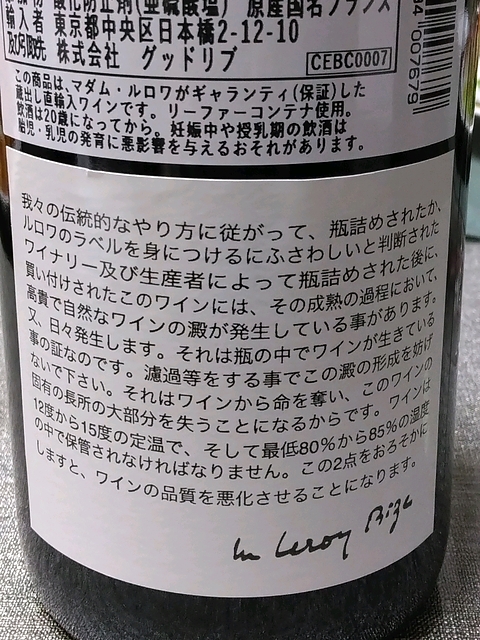 酸化防止剤(亜硫酸塩) 原産国名フランス
輸入者 東京都中央区日本橋2-12-10
及び引取先 株式会社 グッドリブ
CEBC0007
007679
この商品は、マダム・ルロワがギャランティ(保証)した
蔵出し直輸入ワインです。リーファーコンテナ使用。
飲酒は20歳になってから。妊娠中や授乳期の飲酒は
胎児・乳児の発育に悪影響を与えるおそれがあります。
我々の伝統的なやり方に従がって、瓶詰めされたか、
ルロワのラベルを身につけるにふさわしいと判断された
ワイナリー及び生産者によって瓶詰めされた後に、
買い付けされたこのワインには、その成熟の過程において、
高貴で自然なワインの澱が発生している事があります。
又、日々発生します。それは瓶の中でワインが生きている
事の証なのです。濾過等をする事でこの澱の形成を妨げ
ないで下さい。それはワインから命を奪い、このワインの
固有の長所の大部分を失うことになるからです。ワインは
12度から15度の定温で、そして最低80%から85%の湿度
の中で保管されなければなりません。この2点をおろそかに
しますと、ワインの品質を悪化させることになります。
Leroy Bize